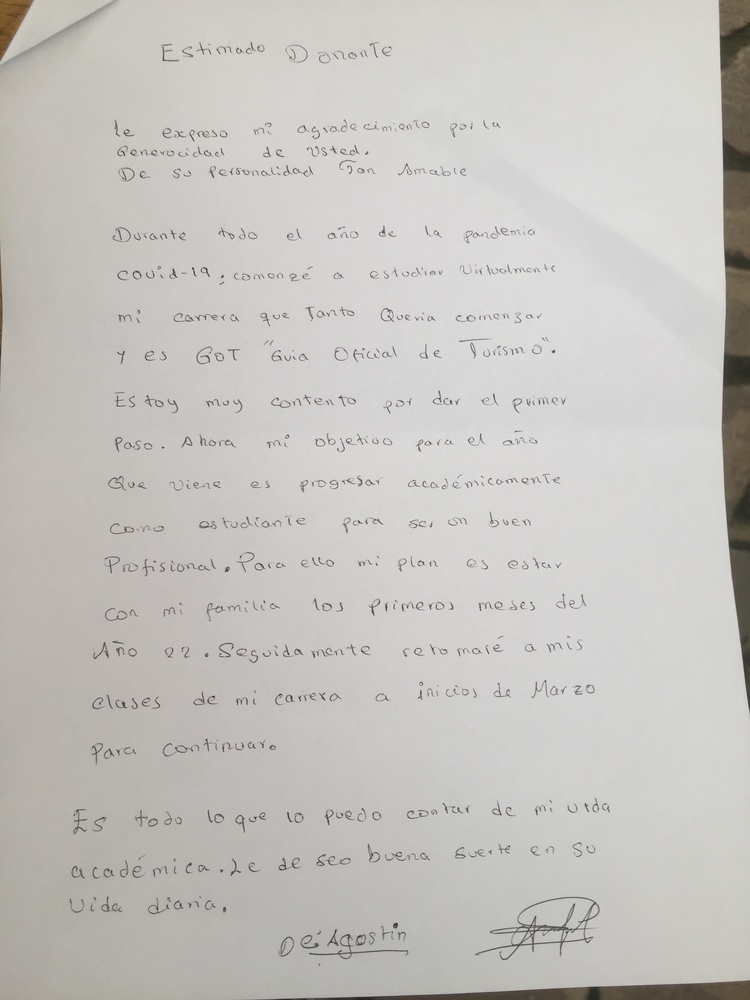 Estimado Donante
le expreso mi agradecimiento por la
Generocidad de Usted.
De su Personalidad Tan Amable
Durante todo el año de la pandemia
covid-19; comenzé a estudiar Virtualmente
mi carrera que Tanto Queria comenzar
Y es GOT "Guia Oficial de Turismo".
Estoy muy contento por dar el primer
Paso. Ahora mi objetivo para el año
Que viene es progresar académicamente
Como estudiante para ser un buen
Profisional. Para ello mi plan es estar
Con mi familia los Primeros meses del
Año 22. Seguidamente retomaré a mis
clases de mi carrera a inicios de Marzo
Para continuar.
Es todo lo que lo puedo contar de mi vida
académica. Le deseo buena suerte en su
Vida diaria.
De: Agostin